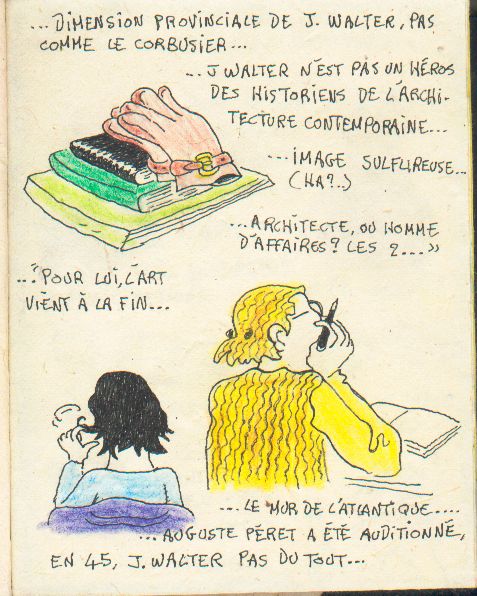 ...DIMENSION PROVINCIALE DE J. WALTER, PAS
COMME LE CORBUSIER...
...J WALTER N'EST PAS UN HÉROS
DES HISTORIENS DE L'ARCHI-
TECTURE CONTEMPORAINE...
...IMAGE SULFUREUSE...
(HA?..)
...ARCHITECTE, OU HOMME
D'AFFAIRES? LES 2...»
..."POUR LUI, L'ART
VIENT À LA FIN...
...LE MUR DE L'ATLANTIQUE....
...AUGUSTE PÉRET A ÉTÉ AUDITIONNÉ,
EN 45, J. WALTER PAS DU TOUT...